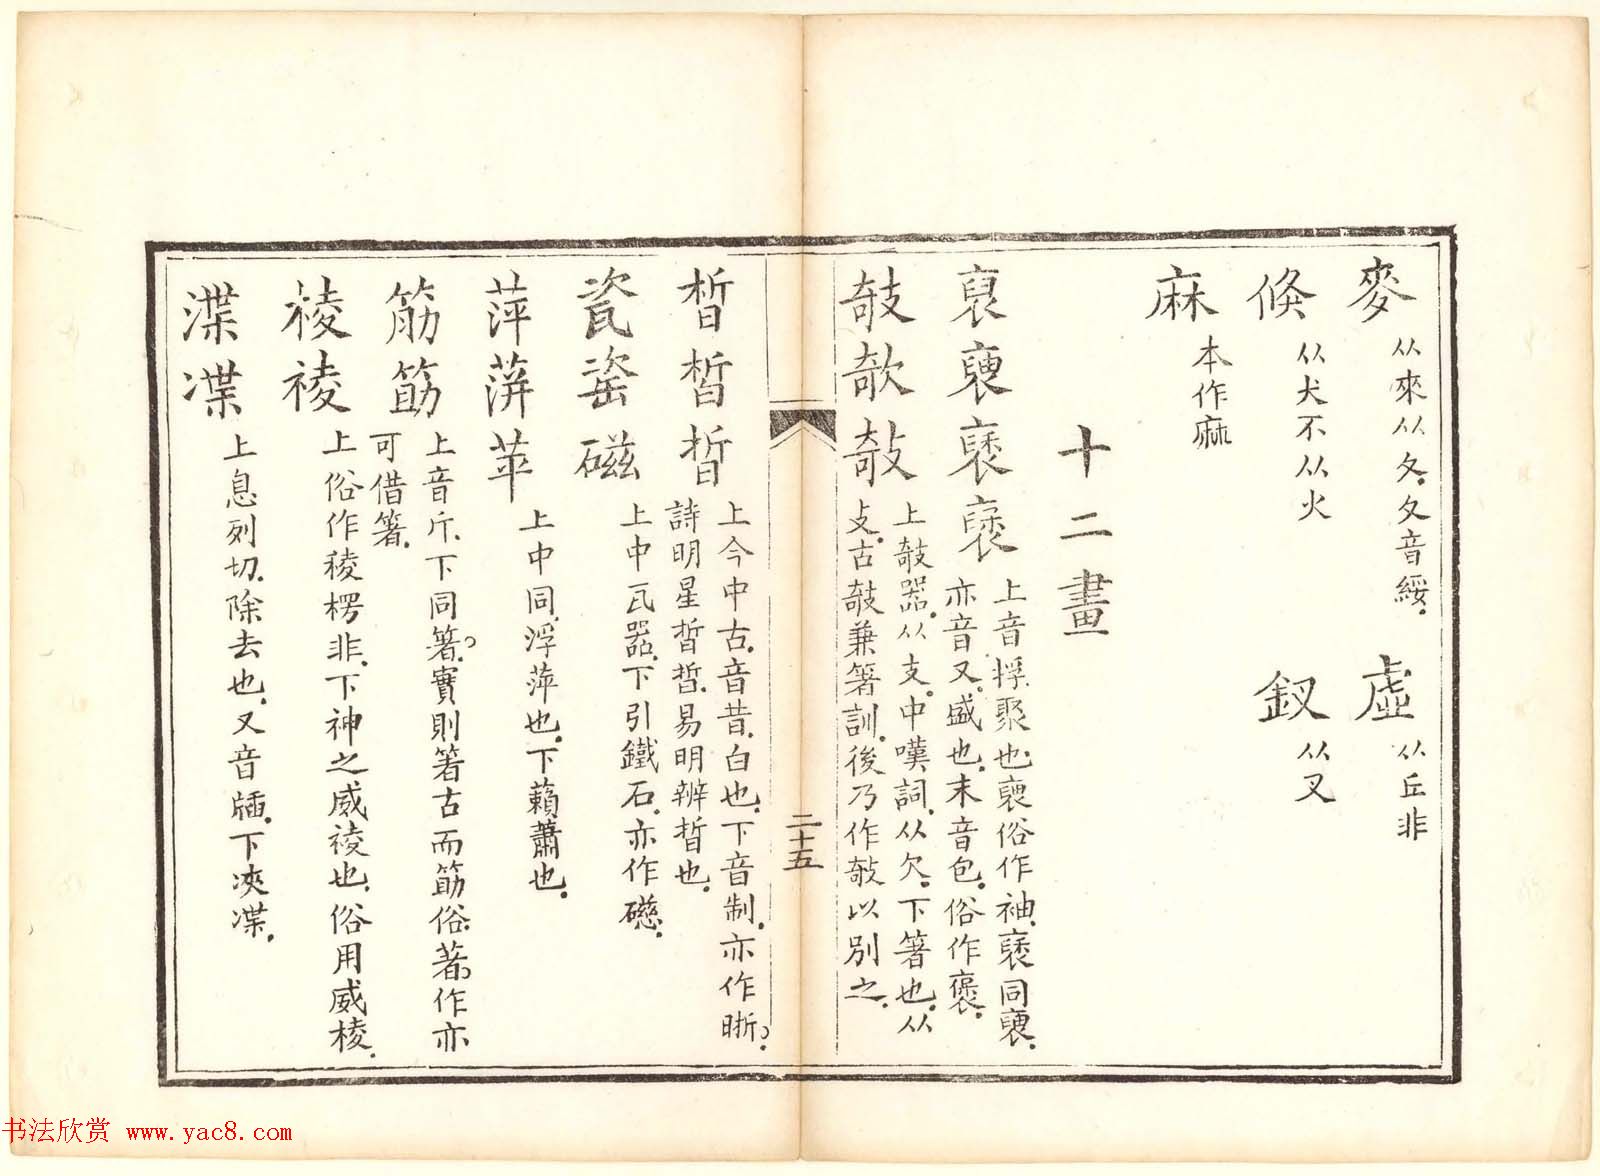 麥 从來从夊夊音綏 虛 从丘非
倏 从犬不从火 釵 从叉
麻 本作麻
十二畫
裒褎褎褒 上音捊聚也褎俗作袖褎同褎
亦音又盛也末音包俗作褒
攲欹敧 上攲器从支中嘆詞从欠下箸也从
攴古攲兼箸訓後乃作敧以別之
二十五
晳皙晢 上今中古音昔白也下音制亦作晣
詩明星晢晢易明辨晢也
瓷瓷磁 上中瓦器下引鐵石亦作礠
萍蓱苹 上中同浮萍也下藾蕭也
筋筯 上音斤下同箸實則箸古而筯俗著作亦
可借箸
稜祾 上俗作稜楞非下神之威祾也俗用威稜
渫渫 上息列切除去也又音牐下浹渫
书法欣赏 www.yac8.com